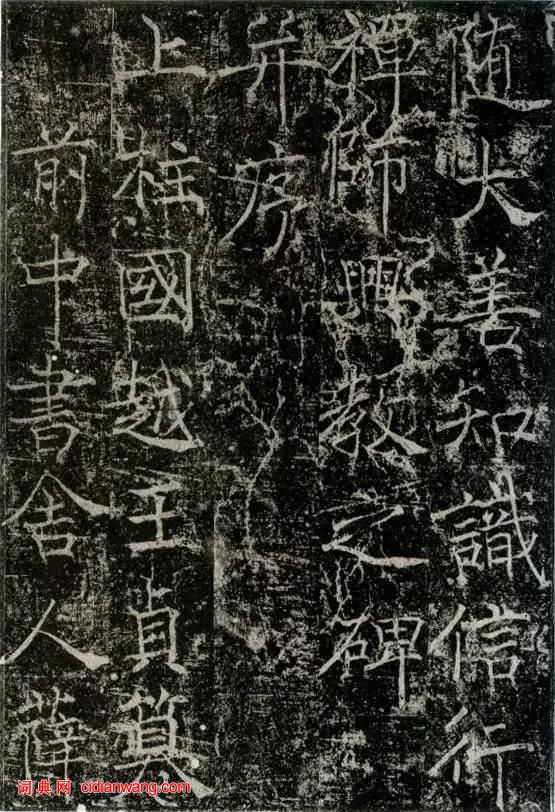 随大善知識信行
禪師興教之碑
并序
上柱國越王貞篹
前中書舍人薛
词典网 cidianwang.com